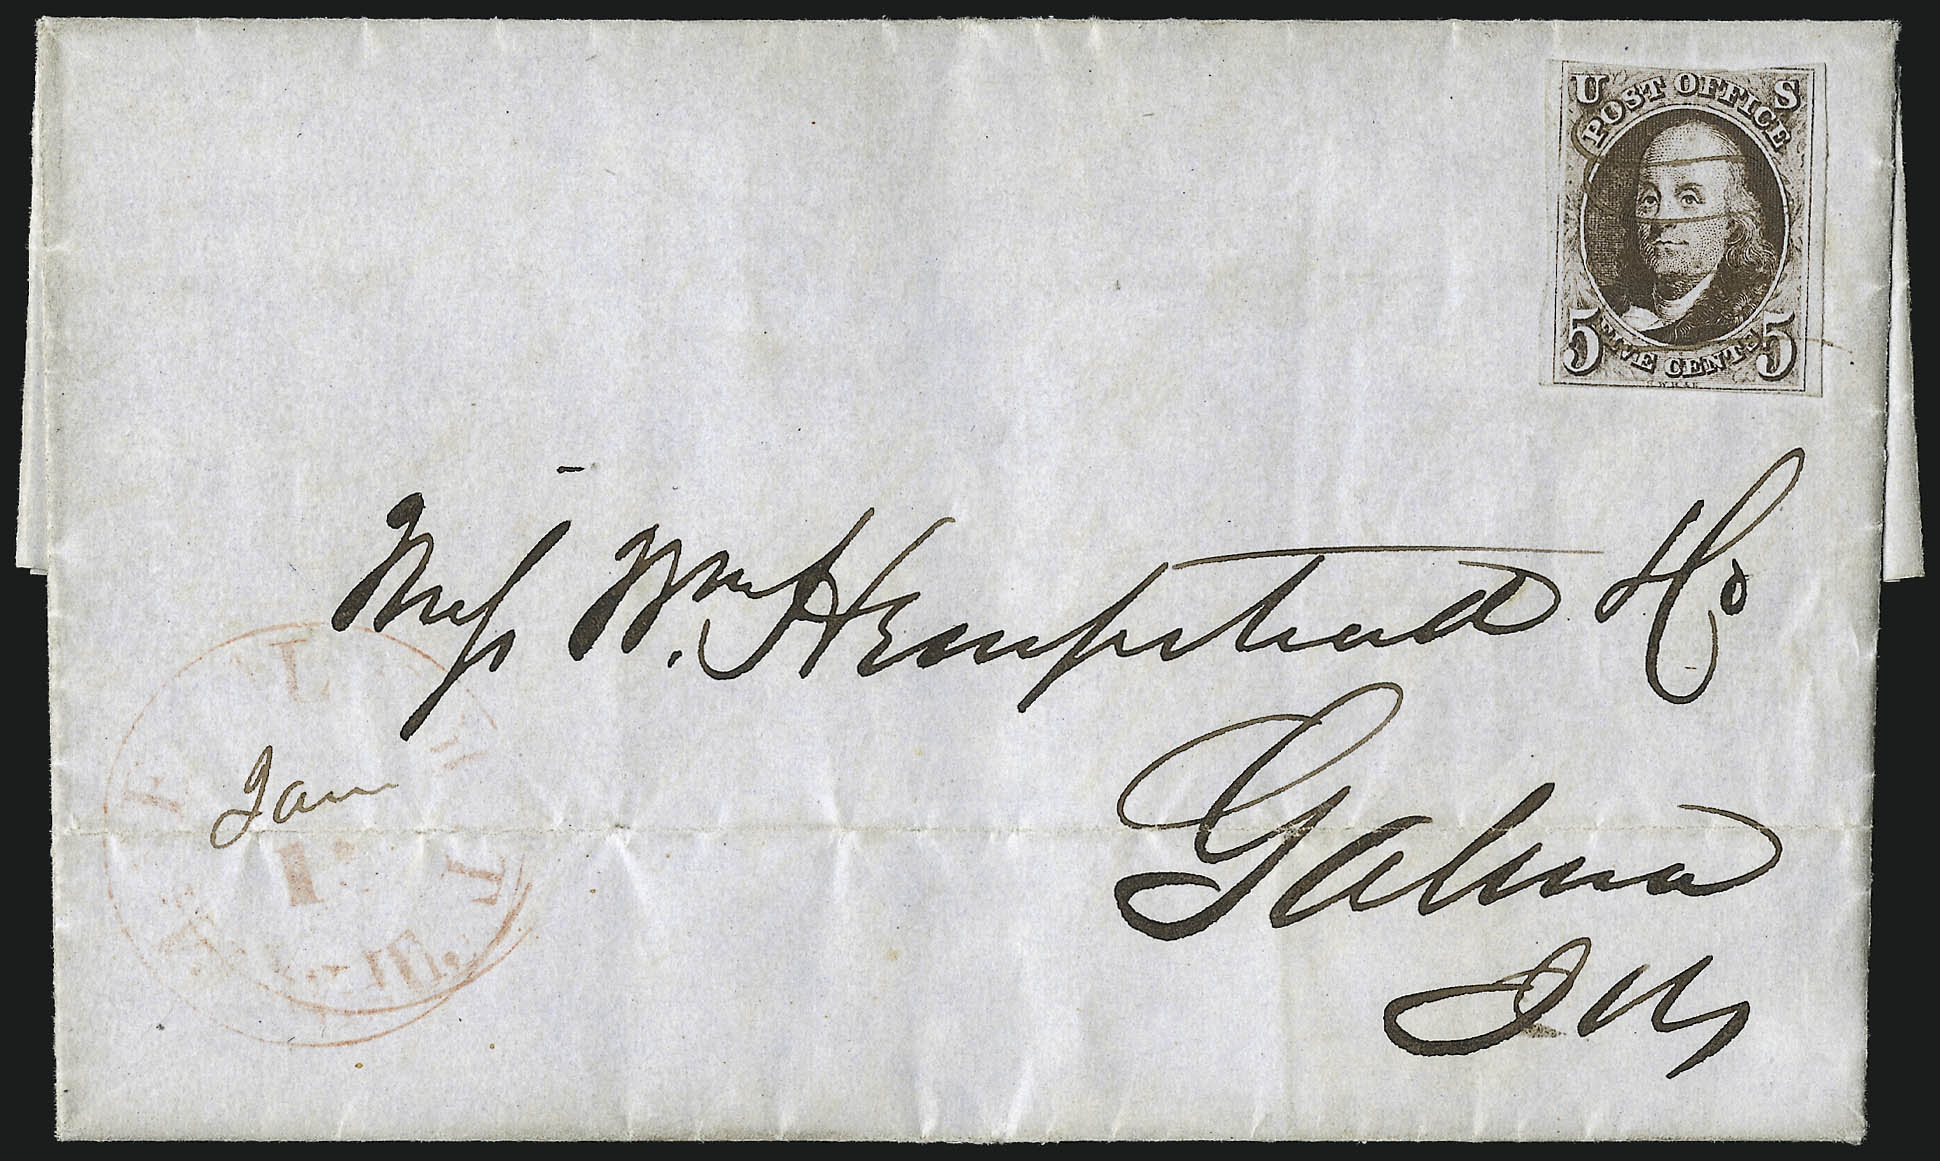 U S
POST OFFICE
5 FIVE CENTS 5
Mess Wm Hempstead & Co
Galena
Ills
Jan
1